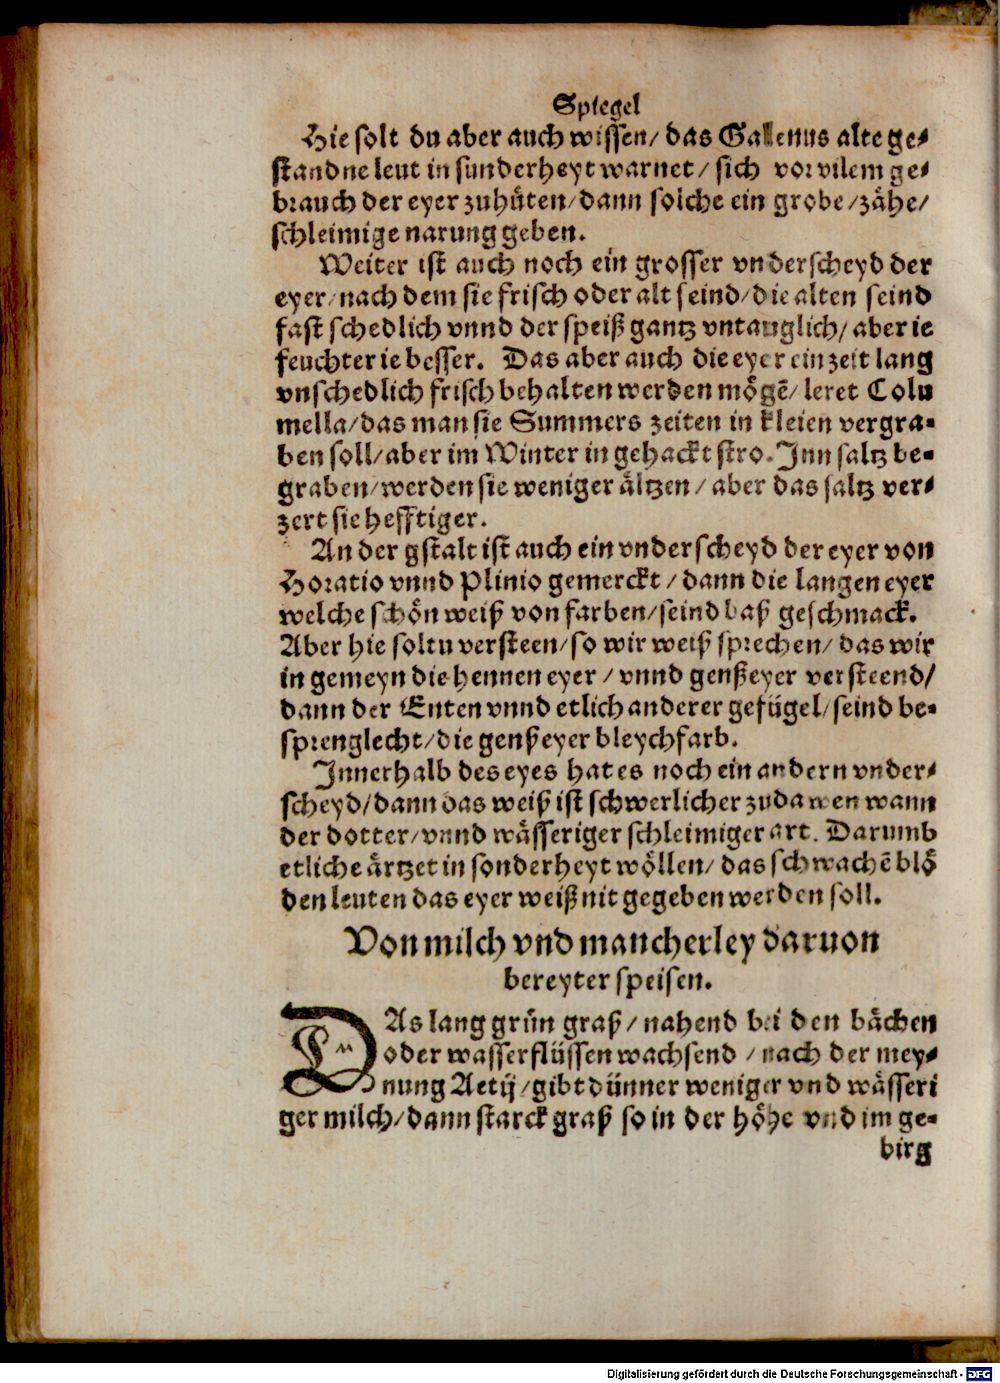 Spiegel
Hie solt du aber auch wissen/ das Gallenus alte ge-
standne leut in sunderheyt warnet/ sich vor vilem ge-
brauch der eyer zuhüten/ dann solche ein grobe/ zähe/
schleimige narung geben.
Weiter ist auch noch ein grosser vnderscheyd der
eyer/ nach dem sie frisch oder alt seind/ die alten seind
fast schedlich vnnd der speiß gantz vntauglich/ aber ie
feuchter ie besser. Das aber auch die eyer ein zeit lang
vnschedlich frisch behalten werden mögẽ/ leret Colu
mella/ das man sie Summers zeiten in kleien vergra-
ben soll/ aber im Winter in gehackt stro. Inn saltz be-
graben/ werden sie weniger ältzen/ aber das saltz ver-
zert sie hefftiger.
An der gstalt ist auch ein vnderscheyd der eyer von
Horatio vnnd Plinio gemerckt/ dann die langen eyer
welche schön weiß von farben/ seind baß geschmack.
Aber hie soltu versteen/ so wir weiß sprechen/ das wir
in gemeyn die hennen eyer/ vnnd genßeyer versteend/
dann der Enten vnnd etlich anderer gefügel/ seind be-
sprenglecht/ die genß eyer bleychfarb.
Innerhalb des eyes hat es noch ein andern vnder-
scheyd/ dann das weiß ist schwerlicher zudawen wann
der dotter/ vnnd wässeriger schleimiger art. Darumb
etliche ärtzet in sonderheyt wöllen/ das schwachẽ blö
den leuten das eyer weiß nit gegeben werden soll.
Von milch vnd mancherley daruon
bereyter speisen.
DAs lang grün graß/ nahend bei den bächen
oder wasserflüssen wachsend/ nach der mey-
nung Aetij/ gibt dünner weniger vnd wässeri
ger milch/ dann starck graß so in der höhe vnd im ge-
birg
Digitalisierung gefördert durch die Deutsche Forschungsgemeinschaft - DFG